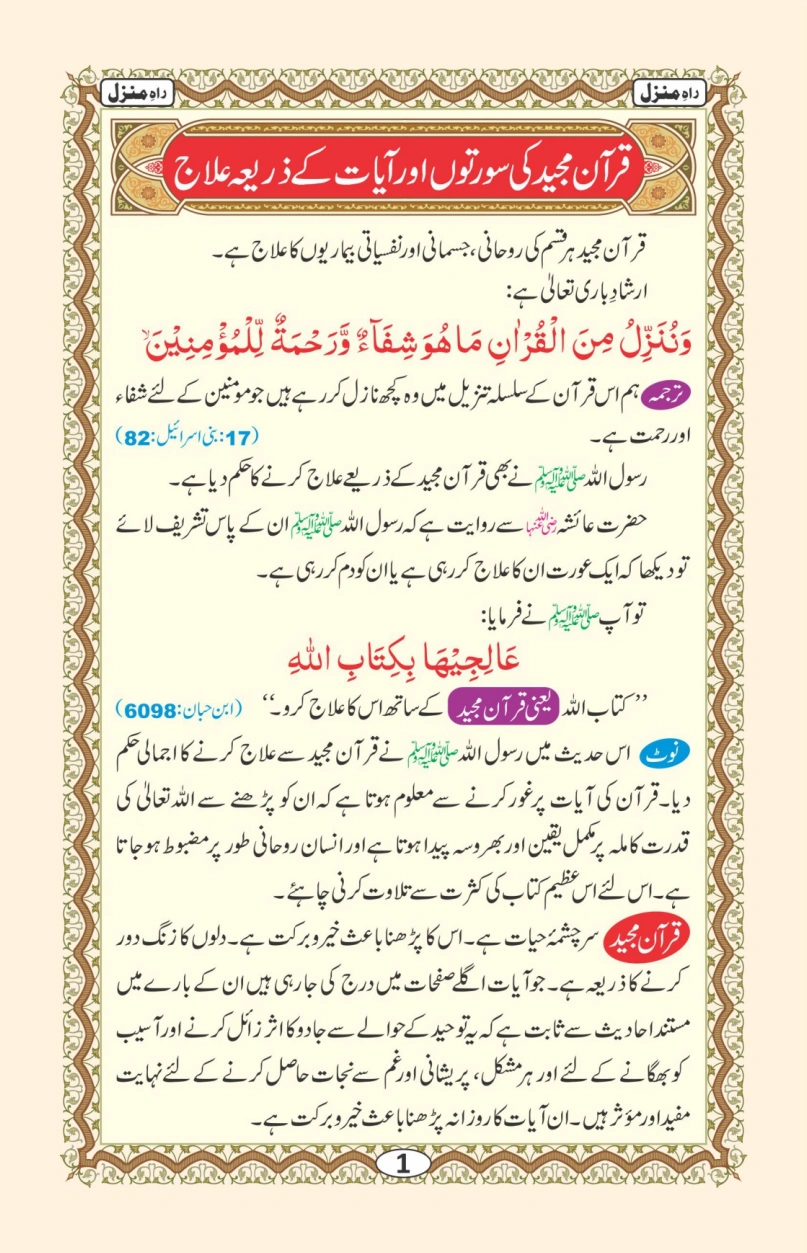 راہِ منزل
راہِ منزل
قرآن مجید کی سورتوں اور آیات کے ذریعہ علاج
قرآن مجید ہر قسم کی روحانی، جسمانی اور نفسیاتی بیماریوں کا علاج ہے۔
ارشادِ باری تعالیٰ ہے:
وَنُنَزِّلُ مِنَ الْقُرْاٰنِ مَا هُوَ شِفَآءٌ وَّرَحْمَةٌ لِّلْمُؤْمِنِيْنَ ۙ
ترجمہ ہم اس قرآن کے سلسلہ تنزیل میں وہ کچھ نازل کر رہے ہیں جو مومنین کے لئے شفاء
اور رحمت ہے۔ (17: بنی اسرائیل: 82)
رسول اللہ ﷺ نے بھی قرآن مجید کے ذریعے علاج کرنے کا حکم دیا ہے۔
حضرت عائشہ رضی اللہ عنہا سے روایت ہے کہ رسول اللہ ﷺ ان کے پاس تشریف لائے
تو دیکھا کہ ایک عورت ان کا علاج کر رہی ہے یا ان کو دم کر رہی ہے۔
تو آپ ﷺ نے فرمایا:
عَالِجِيْهَا بِكِتَابِ اللهِ
”کتاب اللہ یعنی قرآن مجید کے ساتھ اس کا علاج کرو۔“ (ابن حبان: 6098)
نوٹ اس حدیث میں رسول اللہ ﷺ نے قرآن مجید سے علاج کرنے کا اجمالی حکم
دیا۔ قرآن کی آیات پر غور کرنے سے معلوم ہوتا ہے کہ ان کو پڑھنے سے اللہ تعالیٰ کی
قدرت کاملہ پر مکمل یقین اور بھروسہ پیدا ہوتا ہے اور انسان روحانی طور پر مضبوط ہو جاتا
ہے۔ اس لئے اس عظیم کتاب کی کثرت سے تلاوت کرنی چاہئے۔
قرآن مجید سرچشمۂ حیات ہے۔ اس کا پڑھنا باعث خیر و برکت ہے۔ دلوں کا زنگ دور
کرنے کا ذریعہ ہے۔ جو آیات اگلے صفحات میں درج کی جا رہی ہیں ان کے بارے میں
مستند احادیث سے ثابت ہے کہ یہ توحید کے حوالے سے جادو کا اثر زائل کرنے اور آسیب
کو بھگانے کے لئے اور ہر مشکل، پریشانی اور غم سے نجات حاصل کرنے کے لئے نہایت
مفید اور مؤثر ہیں۔ ان آیات کا روزانہ پڑھنا باعث خیر و برکت ہے۔
1